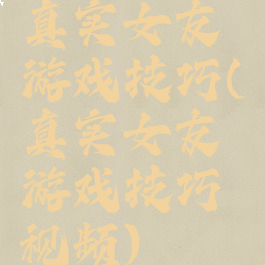 真实女友
游戏技巧(
真实女友
游戏技巧
视频)